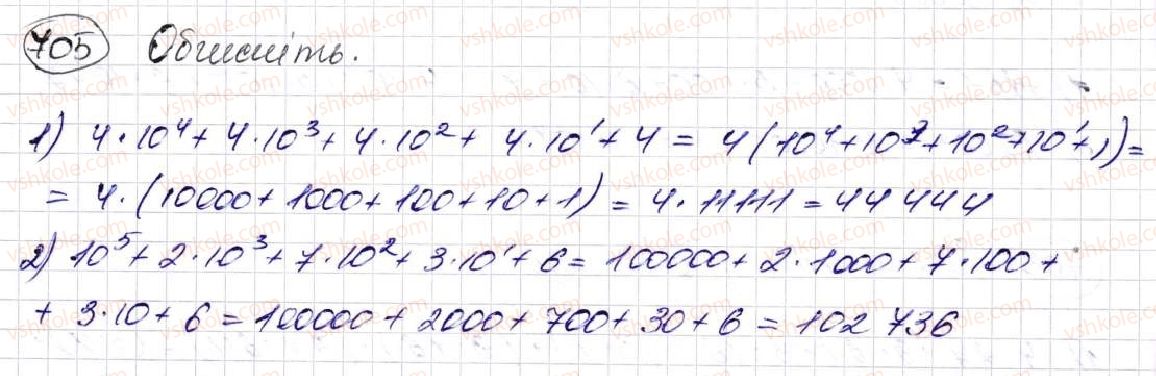 705 Обчисліть.
1) 4·10⁴ + 4·10³ + 4·10² + 4·10¹ + 4 = 4(10⁴+10³+10²+10¹+1) =
= 4·(10000+1000+100+10+1) = 4·11111 = 44 444
2) 10⁵ + 2·10³ + 7·10² + 3·10¹ + 6 = 100000 + 2·1000 + 7·100 +
+ 3·10 + 6 = 100000 + 2000 + 700 + 30 + 6 = 102 736